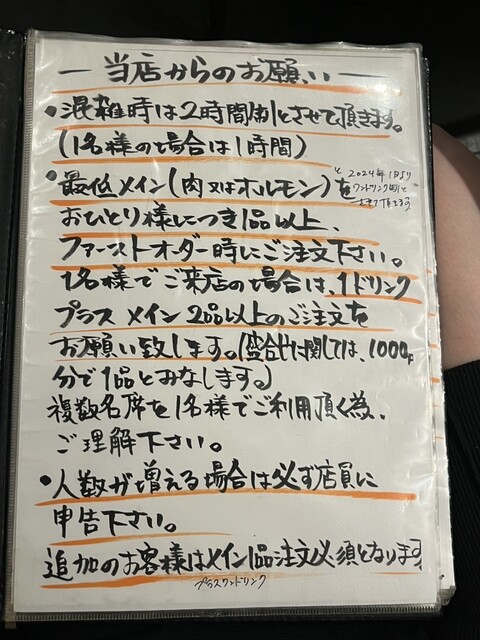 ― 当店からのお願い ―
・混雑時は2時間制とさせて頂きます。
(1名様の場合は1時間)
・最低メイン(肉又はホルモン)を
と2024年1月より
ワンドリンク制と
させて頂きます
おひとり様につき1品以上、
ファーストオーダー時にご注文下さい。
1名様でご来店の場合は、1ドリンク
プラス メイン2品以上のご注文を
お願い致します。(盛合せに関しては、1000円
分で1品とみなします。)
複数名席を1名様でご利用頂く為、
ご理解下さい。
・人数が増える場合は必ず店員に
申告下さい。
追加のお客様はメイン1品注文必須となります
プラスワンドリンク